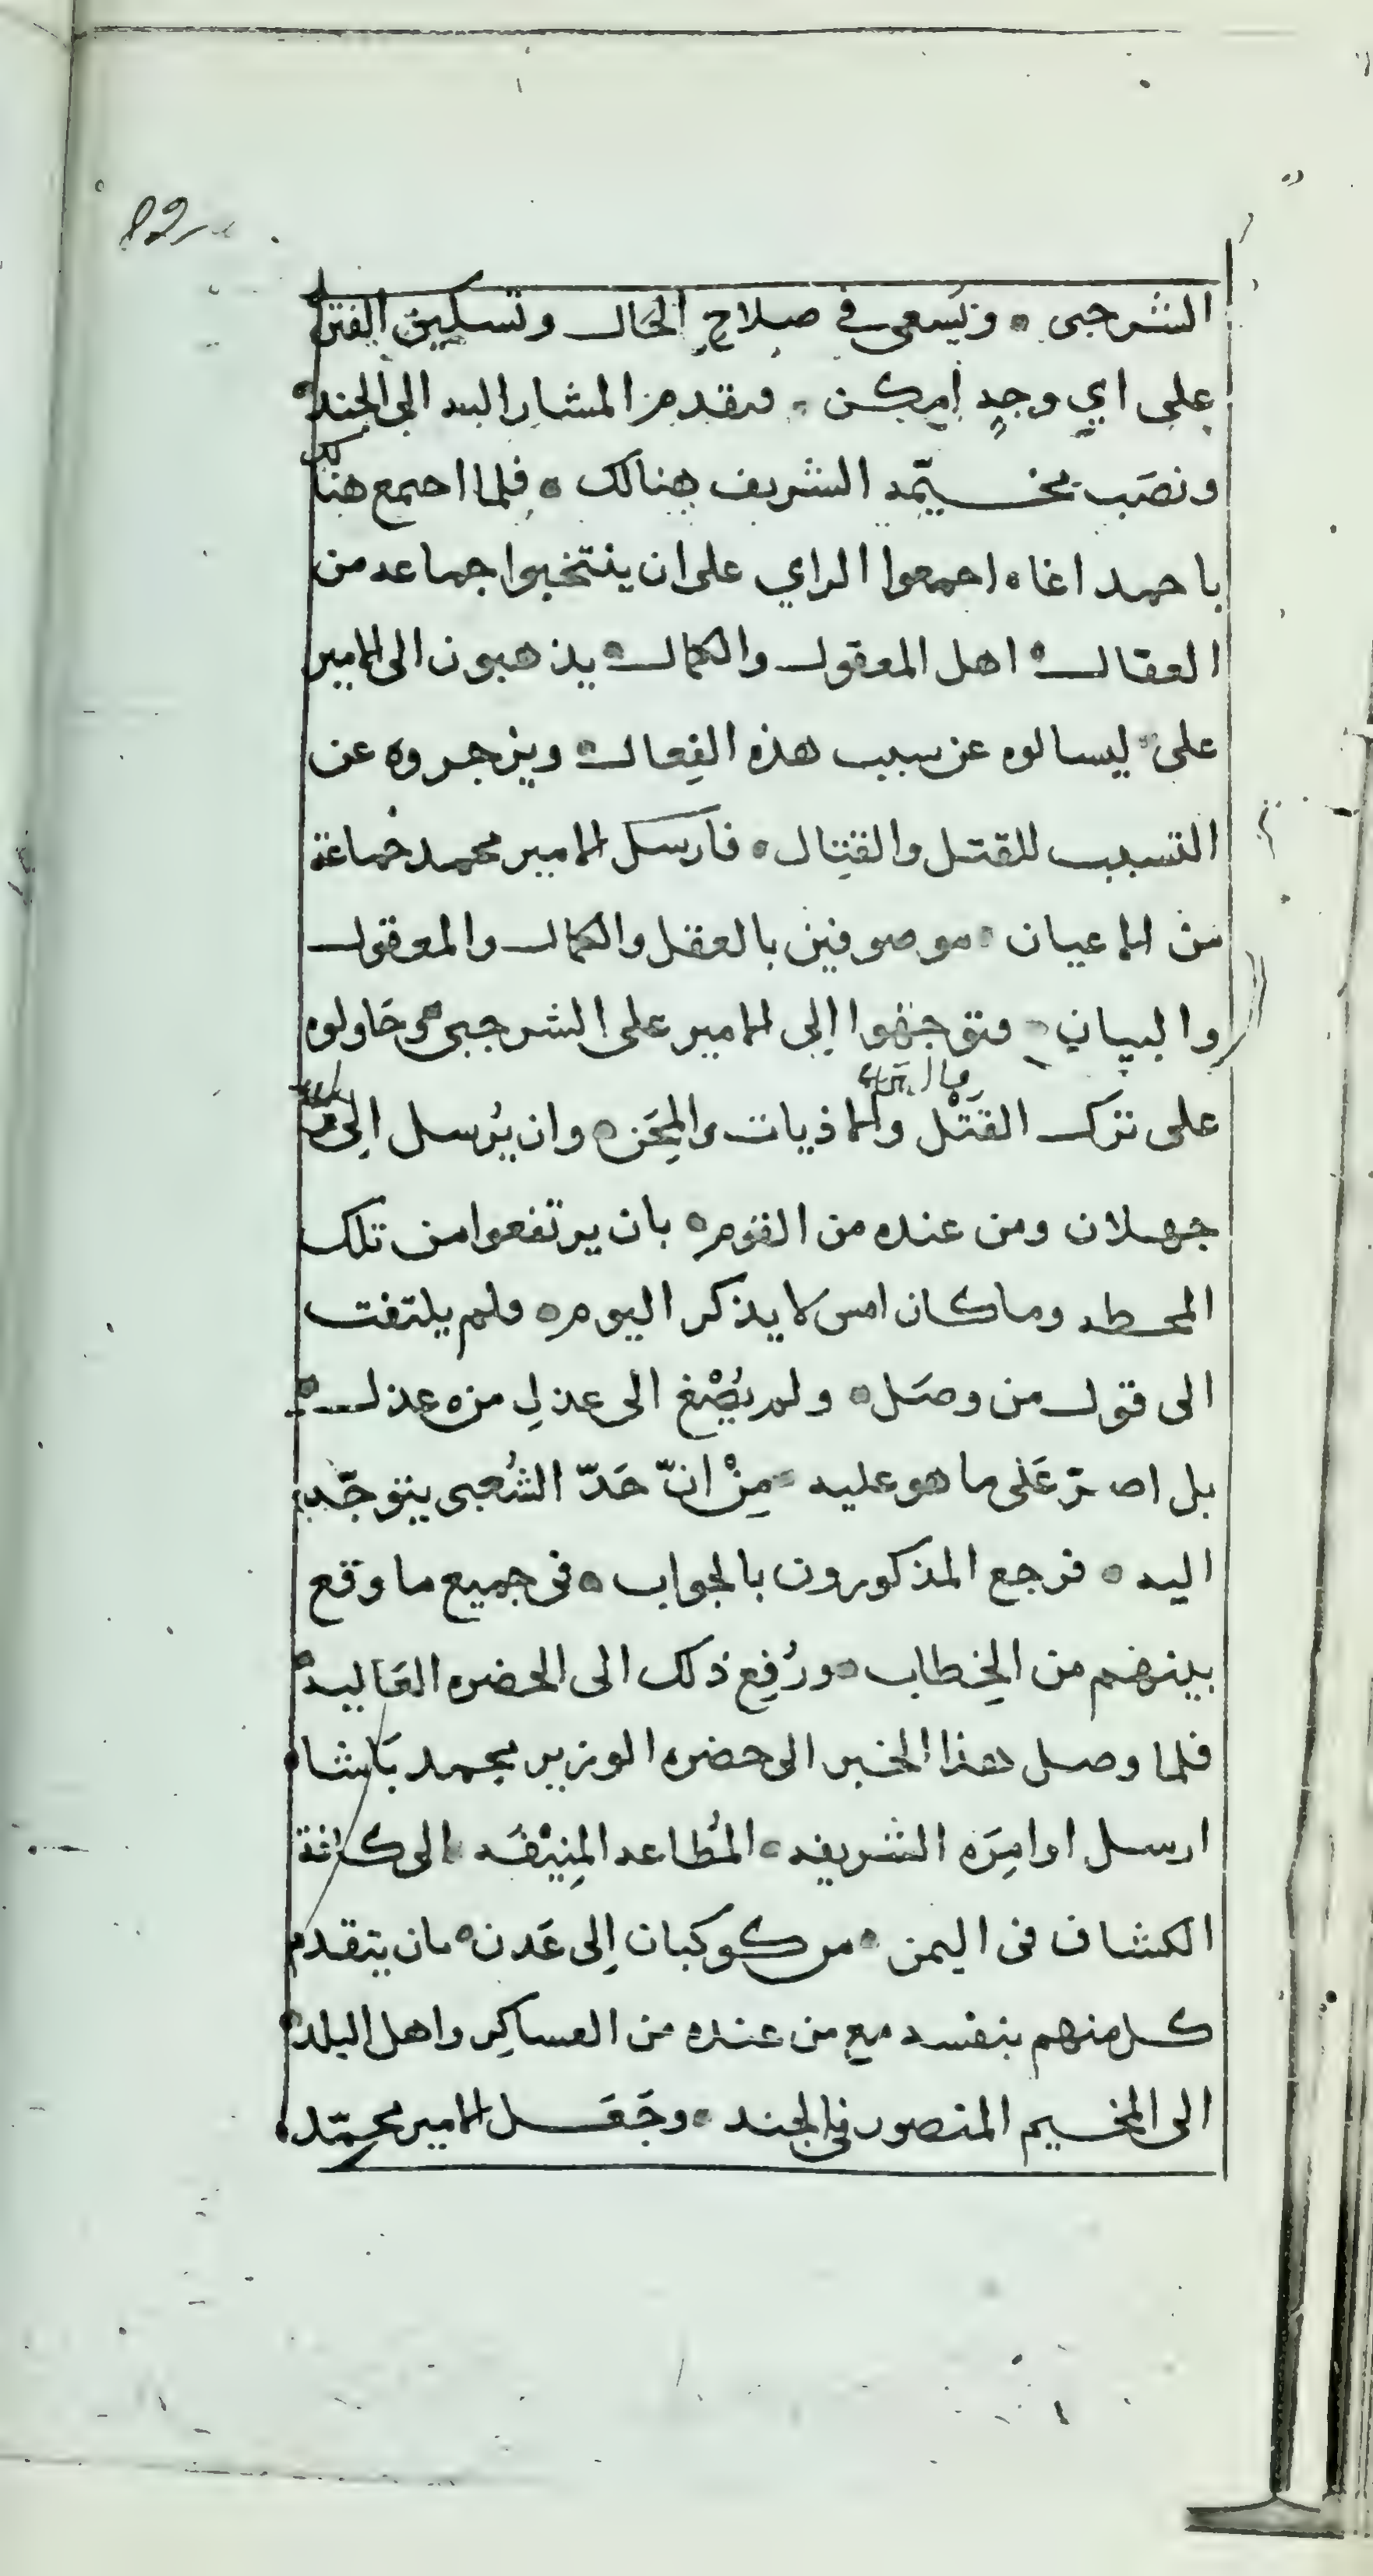 82
الشرجبى ۞ ويَسعى في صلاحِ الحَال وتسكين الفتن
على ايِ وجهٍ امكن ۞ فتقدم المشار اليه الى الجند ۞
ونصَب مخيّمه الشريف هنالك ۞ فلما اجتمع هنالك
باحمد اغا ۞ اجمعوا الراي على ان ينتخبوا جماعه من
العقال ۞ اهل المعقول والكمال ۞ يذهبون الى الامير
على ۞ ليسالوه عن سبب هذه الفِعال ۞ ويزجروه عن
التسبب للقتل والقتِال ۞ فارسل الامير محمد جماعة
من الاعيان ۞ موصوفين بالعقل والكمال والمعقول
والبيان ۞ فتوجهوا اِلى الامير على الشرجبى ۞ وحَاولوه
على ترك القتْل والاذيات والمِحَن ۞ وان يُرسل اِلى
جهلان ومن عنده من القوم ۞ بان يرتفعوا من تلك
المحطه وما كان امس لا يذكر اليوم ۞ فلم يلتفت
الى قول من وصَل ۞ ولم يُصْغ الى عذلِ من عذل ۞
بل اصرّ عَلى ما هو عليه ۞ مِنْ انّ حَدّ الشُعبى يتوجّه
اليه ۞ فرجع المذكورون بالجواب ۞ فى جميع ما وقع
بينهم من الخِطاب ۞ ورُفِع ذلك الى الحضره العَاليه ۞
فلما وصل هذا الخبر الى حضره الوزير محمد بَاشا ۞
ارسل اوامِرَه الشريفه ۞ المُطاعه المِنيْفَه ۞ الى كافة
الكشاف فى اليمن ۞ من كوكبان اِلى عَدن ۞ بان يتقدم
كل منهم بنفسه مع من عنده من العساكِر واهل البلد ۞
الى المخيم المنصور في الجند ۞ وجَعَل الامير محمّد ۞